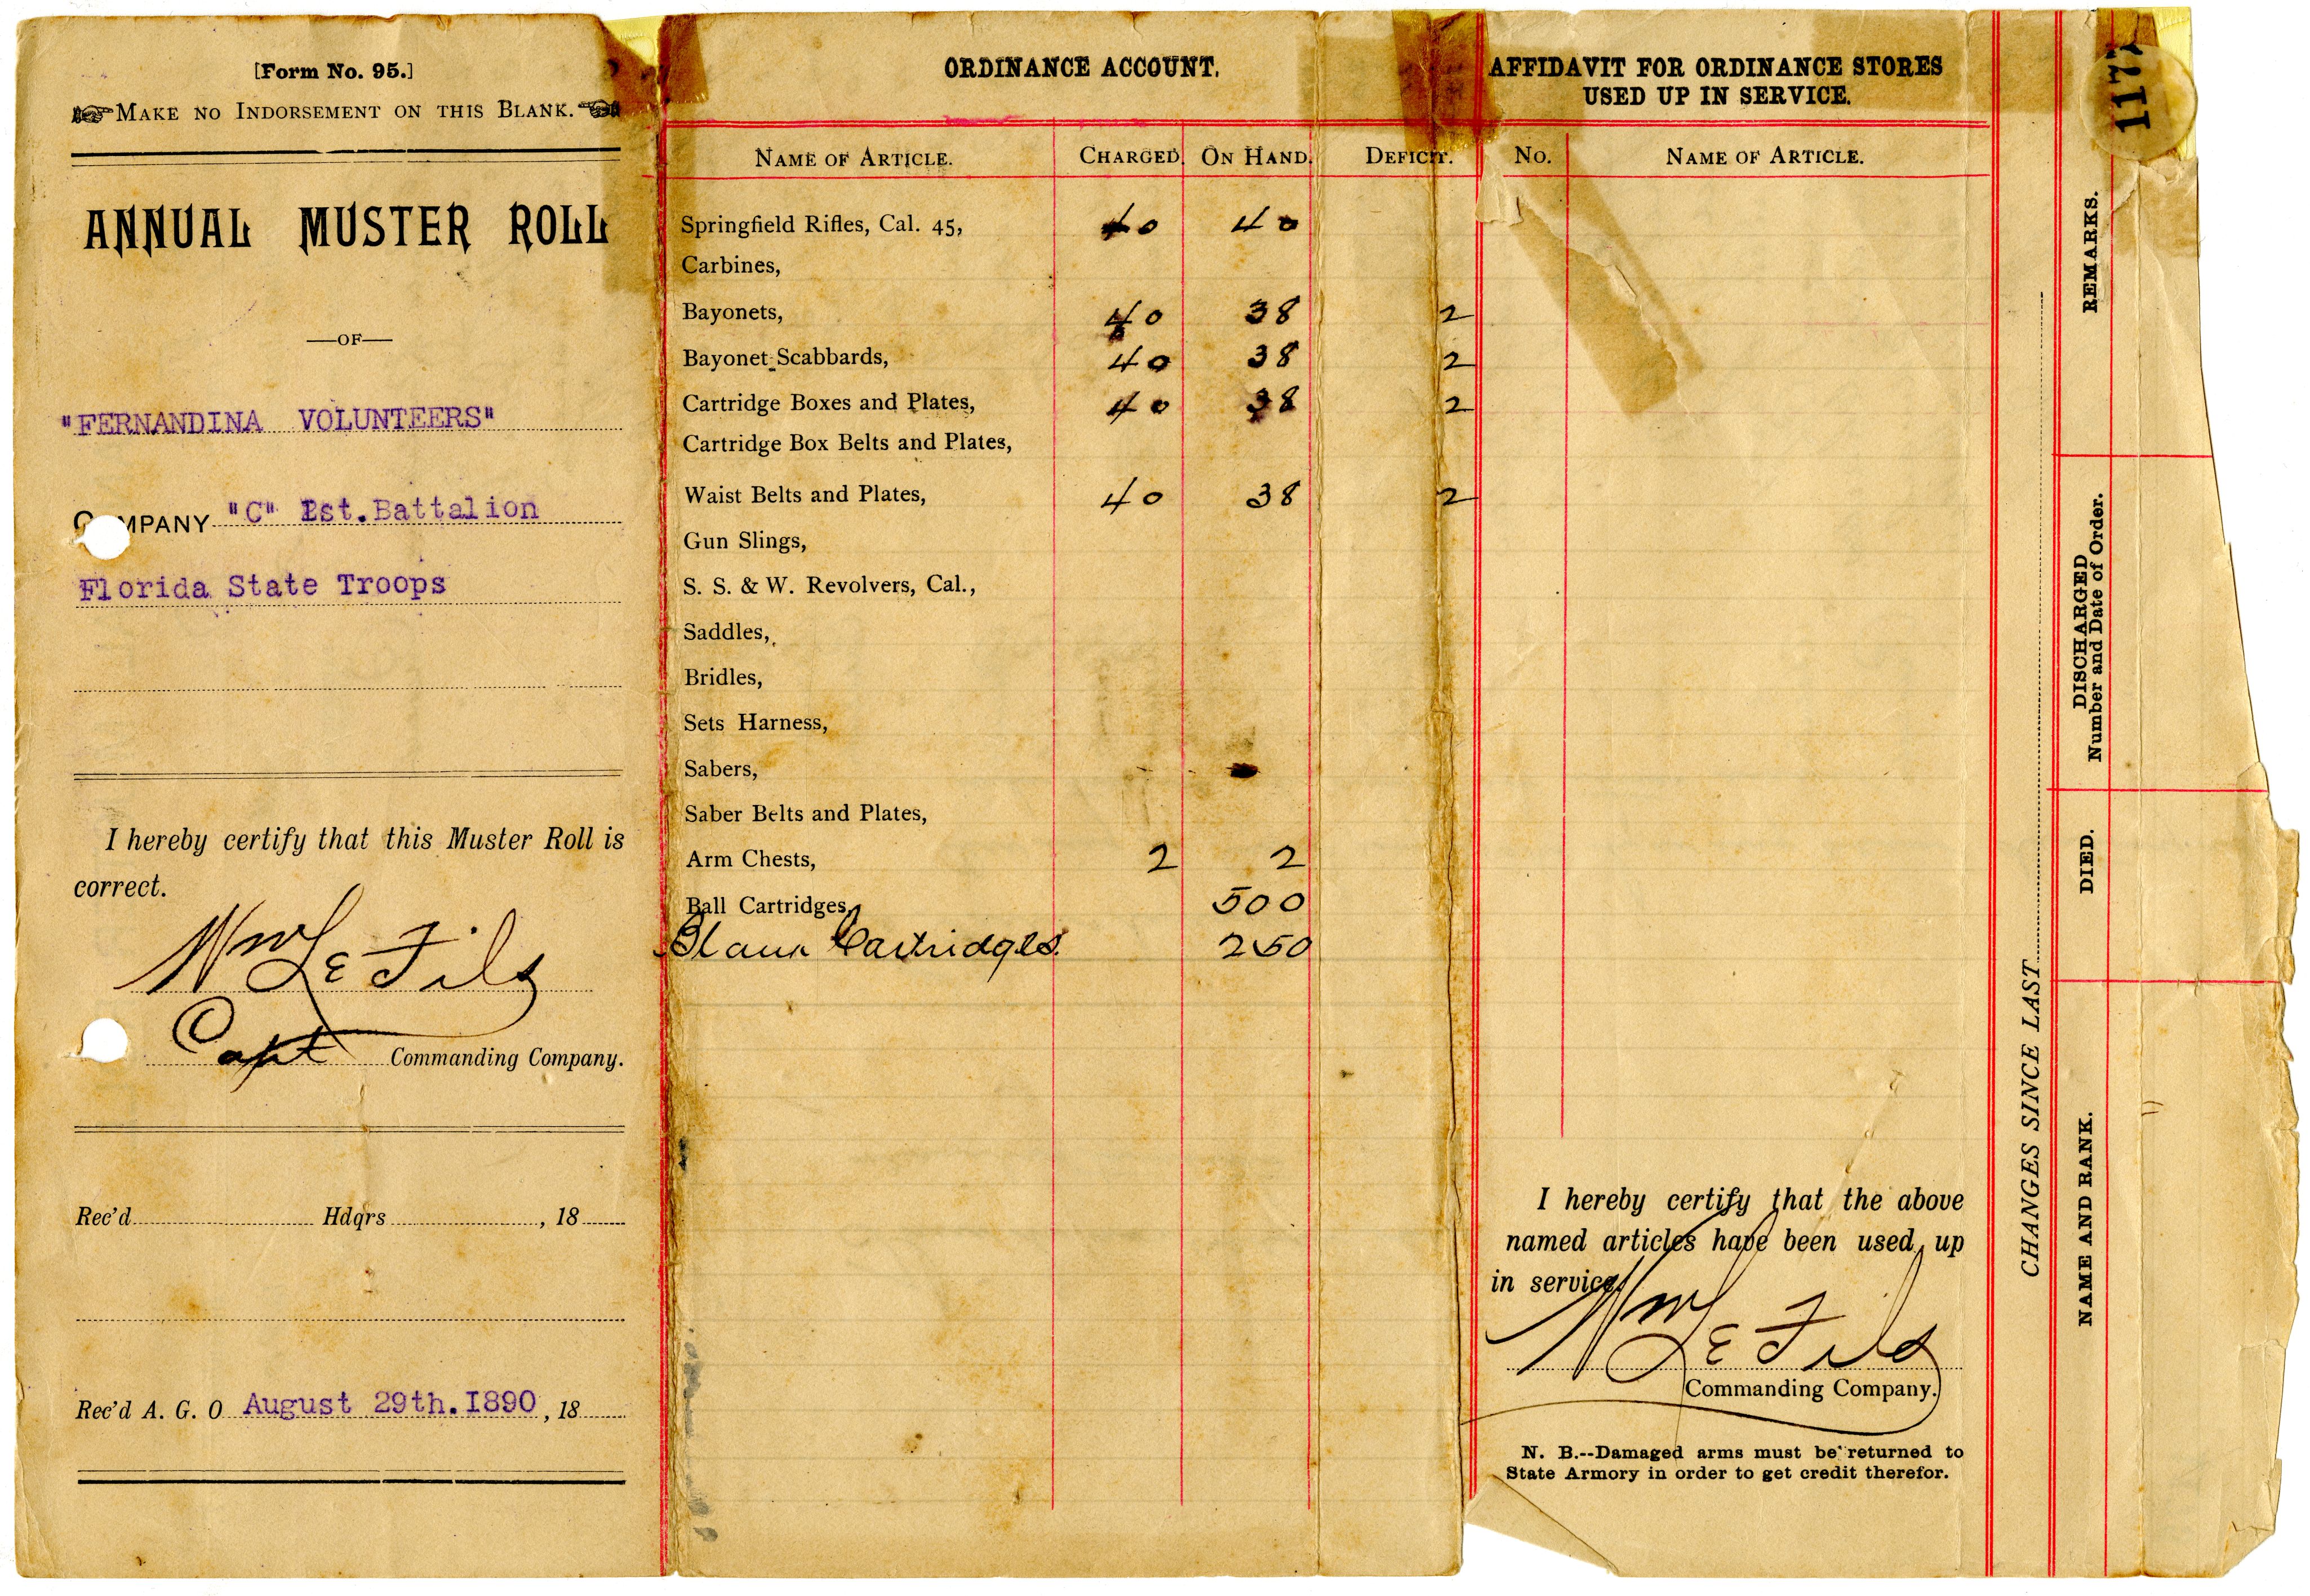 [Form No. 95.]
MAKE NO INDORSEMENT ON THIS BLANK.
ANNUAL MUSTER ROLL
—OF—
"FERNANDINA VOLUNTEERS"
COMPANY "C" Ist.Battalion
Florida State Troops
I hereby certify that this Muster Roll is
correct.
Wm Le Fils
Capt Commanding Company.
Rec'd Hdqrs , 18
Rec'd A. G. O August 29th.I890, 18
ORDINANCE ACCOUNT.
NAME OF ARTICLE. CHARGED. ON HAND. DEFICIT.
Springfield Rifles, Cal. 45, 40 40
Carbines,
Bayonets, 40 38 2
Bayonet-Scabbards, 40 38 2
Cartridge Boxes and Plates, 40 38 2
Cartridge Box Belts and Plates,
Waist Belts and Plates, 40 38 2
Gun Slings,
S. S. & W. Revolvers, Cal.,
Saddles,
Bridles,
Sets Harness,
Sabers,
Saber Belts and Plates,
Arm Chests, 2 2
Ball Cartridges, 500
Blank Cartridges. 250
AFFIDAVIT FOR ORDINANCE STORES
USED UP IN SERVICE.
NO. NAME OF ARTICLE.
I hereby certify that the above
named articles have been used up
in service.
Wm Le Fils
Commanding Company.
N. B.--Damaged arms must be returned to
State Armory in order to get credit therefor.
CHANGES SINCE LAST
NAME AND RANK.
DIED.
DISCHARGED
Number and Date of Order.
REMARKS.
1177